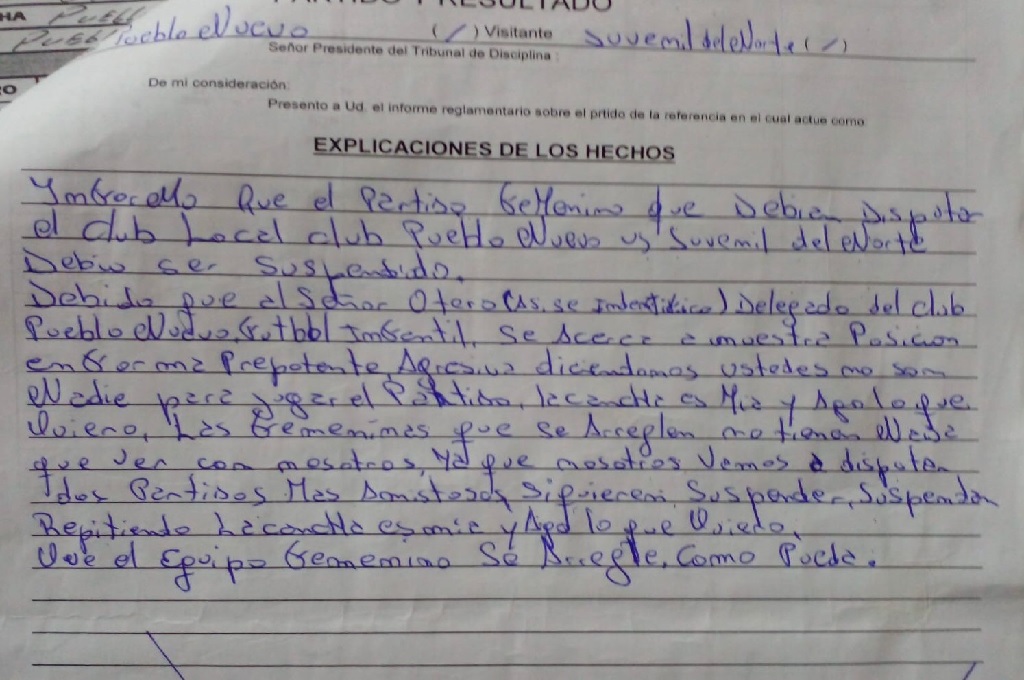 PARTIDO Y RESULTADO
HA Puebl
Pueb Pueblo Nuevo (/) Visitante Juvenil del Norte (/)
Señor Presidente del Tribunal de Disciplina :
RO De mi consideración:
Presento a Ud. el informe reglamentario sobre el prtido de la referencia en el cual actue como
EXPLICACIONES DE LOS HECHOS
Ynformo Que el Partido Femenino que Debian Disputar
el Club Local club Pueblo Nuevo vs Juvenil del Norte
Debio ser Suspendido.
Debido que el Señor Otero (As. se Indentifico) Delegado del club
Pueblo Nuevo Futbol Infantil, Se Acerca a nuestra Posicion
en forma Prepotente, Agresiva diciendonos ustedes no son
Nadie para jugar el Partido, la cancha es Mia y Ago lo que
Quiero, Las Femeninas que se Arreglen no tienen Nada
que ver con nosotros, Ya que nosotros Vamos a disputar
dos Partidos Mas Amistosos, Si quieren Suspender, Suspendan
Repitiendo La cancha es mia y Ago lo que Quiero.
Que el Equipo Femenino Se Arregle, Como Pueda.